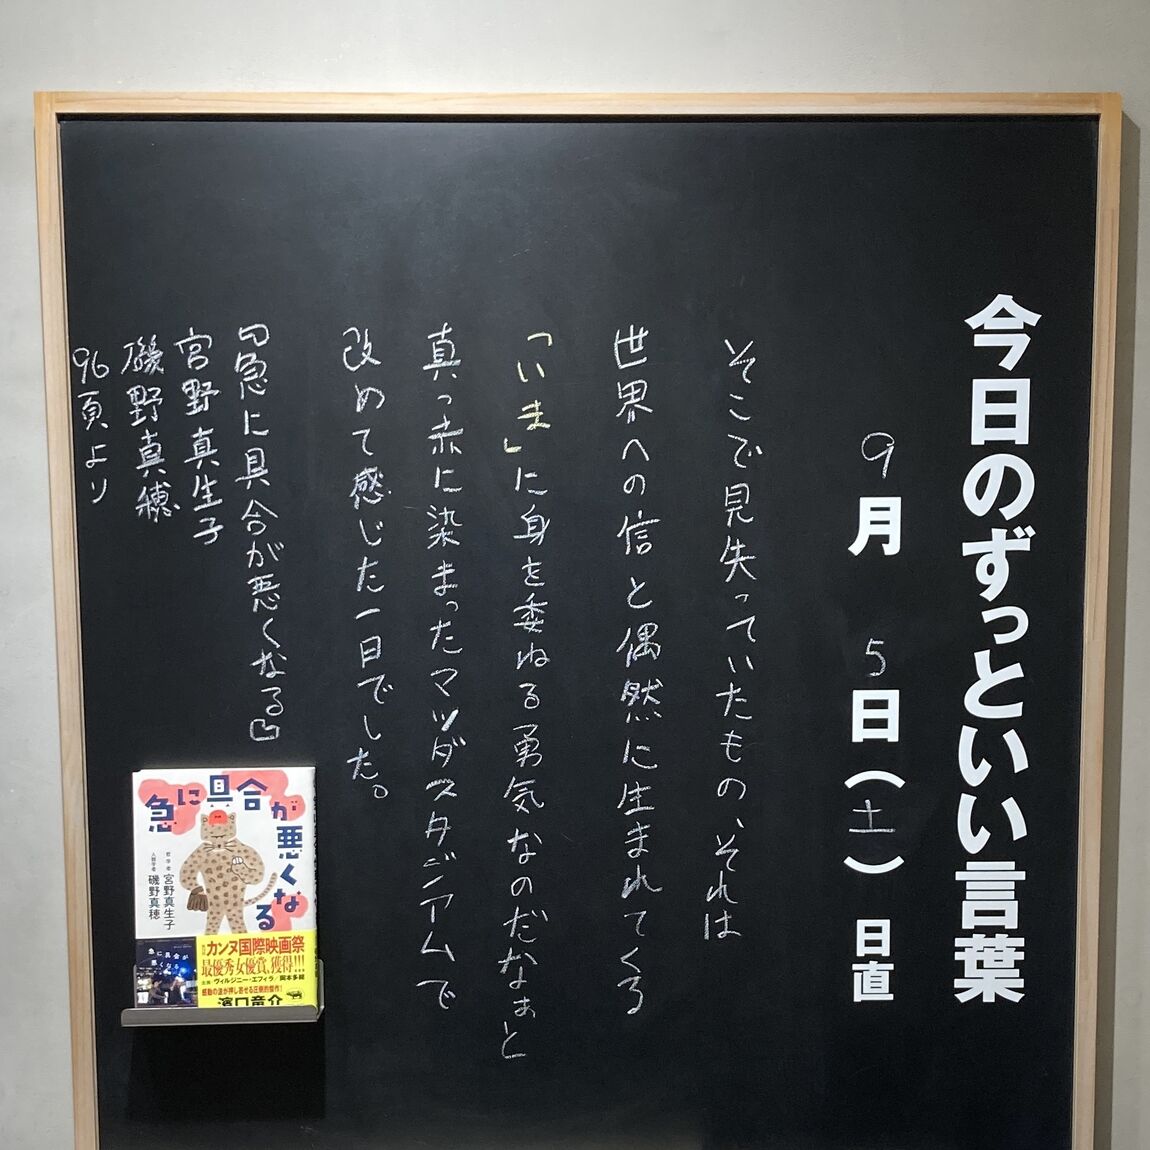 今日のずっといい言葉
9月 5日(土) 日直
そこで見失っていたもの、それは
世界への信と偶然に生まれてくる
「いま」に身を委ねる勇気なのだなぁと
真っ赤に染まったマツダスタジアムで
改めて感じた一日でした。
『急に具合が悪くなる』
宮野真生子
磯野真穂
96頁より
急に具合が
悪くなる
哲学者 宮野真生子
人類学者 磯野真穂
カンヌ国際映画祭
最優秀女優賞、獲得!!!
主演 ヴィルジニー・エフィラ/岡本多緒
感動の波が押し寄せる圧倒的傑作!
濱口竜介
急に具合が
悪くなる